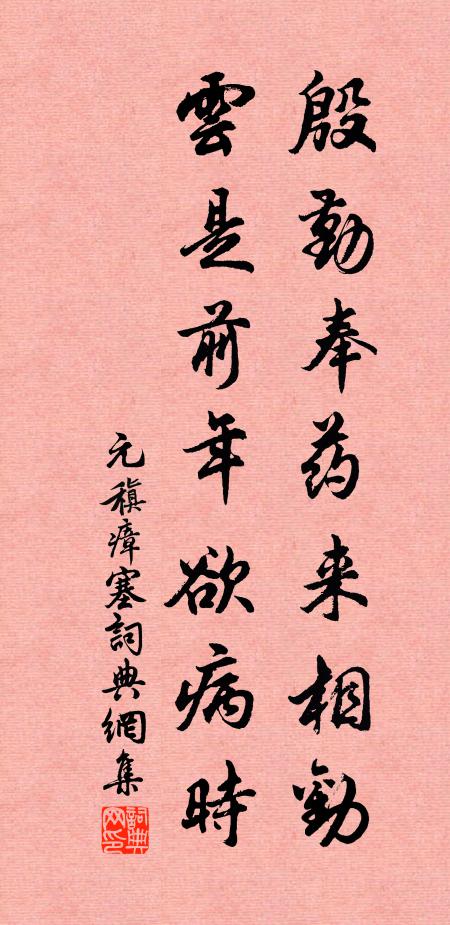 殷勤奉药来相勸
雲是前年欲病時
元稹瘴塞詞典網集
詞典网印